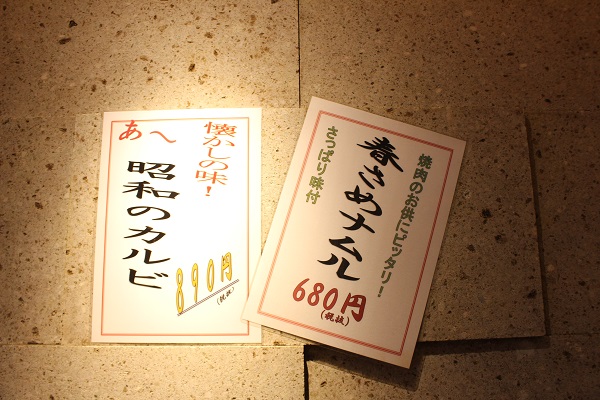 懐かしの味!
あ〜
昭和のカルビ
890円
(税抜)
焼肉のお供にピッタリ!
春さめナムル
さっぱり味付
680円
(税抜)